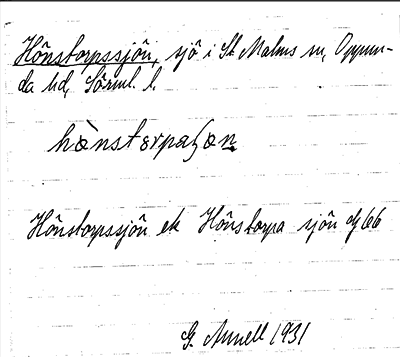 Hönstorpssjön, sjö i St. Malms sn, Oppun-
da hd, Sörml. l.
hö̀nstɛrpaʃön
Hönstorpssjön ek Hönstorpa sjön dj 66
G. Annell 1931